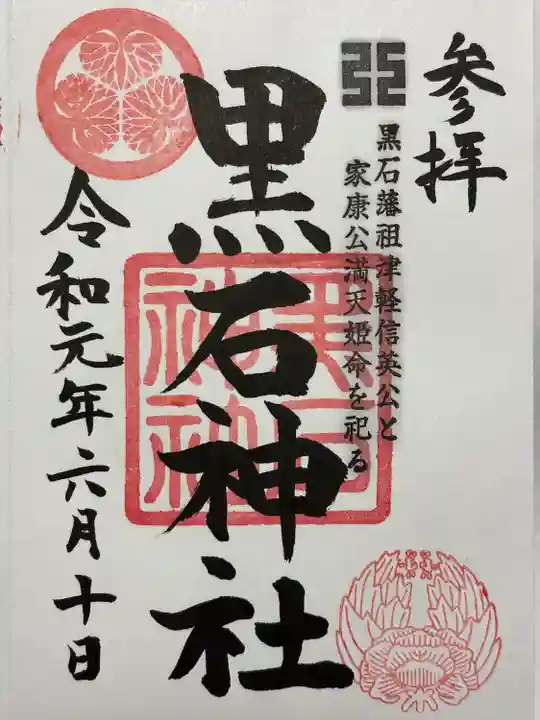 参拝
黒石藩祖津軽信英公と
家康公満天姫命を祀る
黒石神社
黒石神社
令和元年六月十日